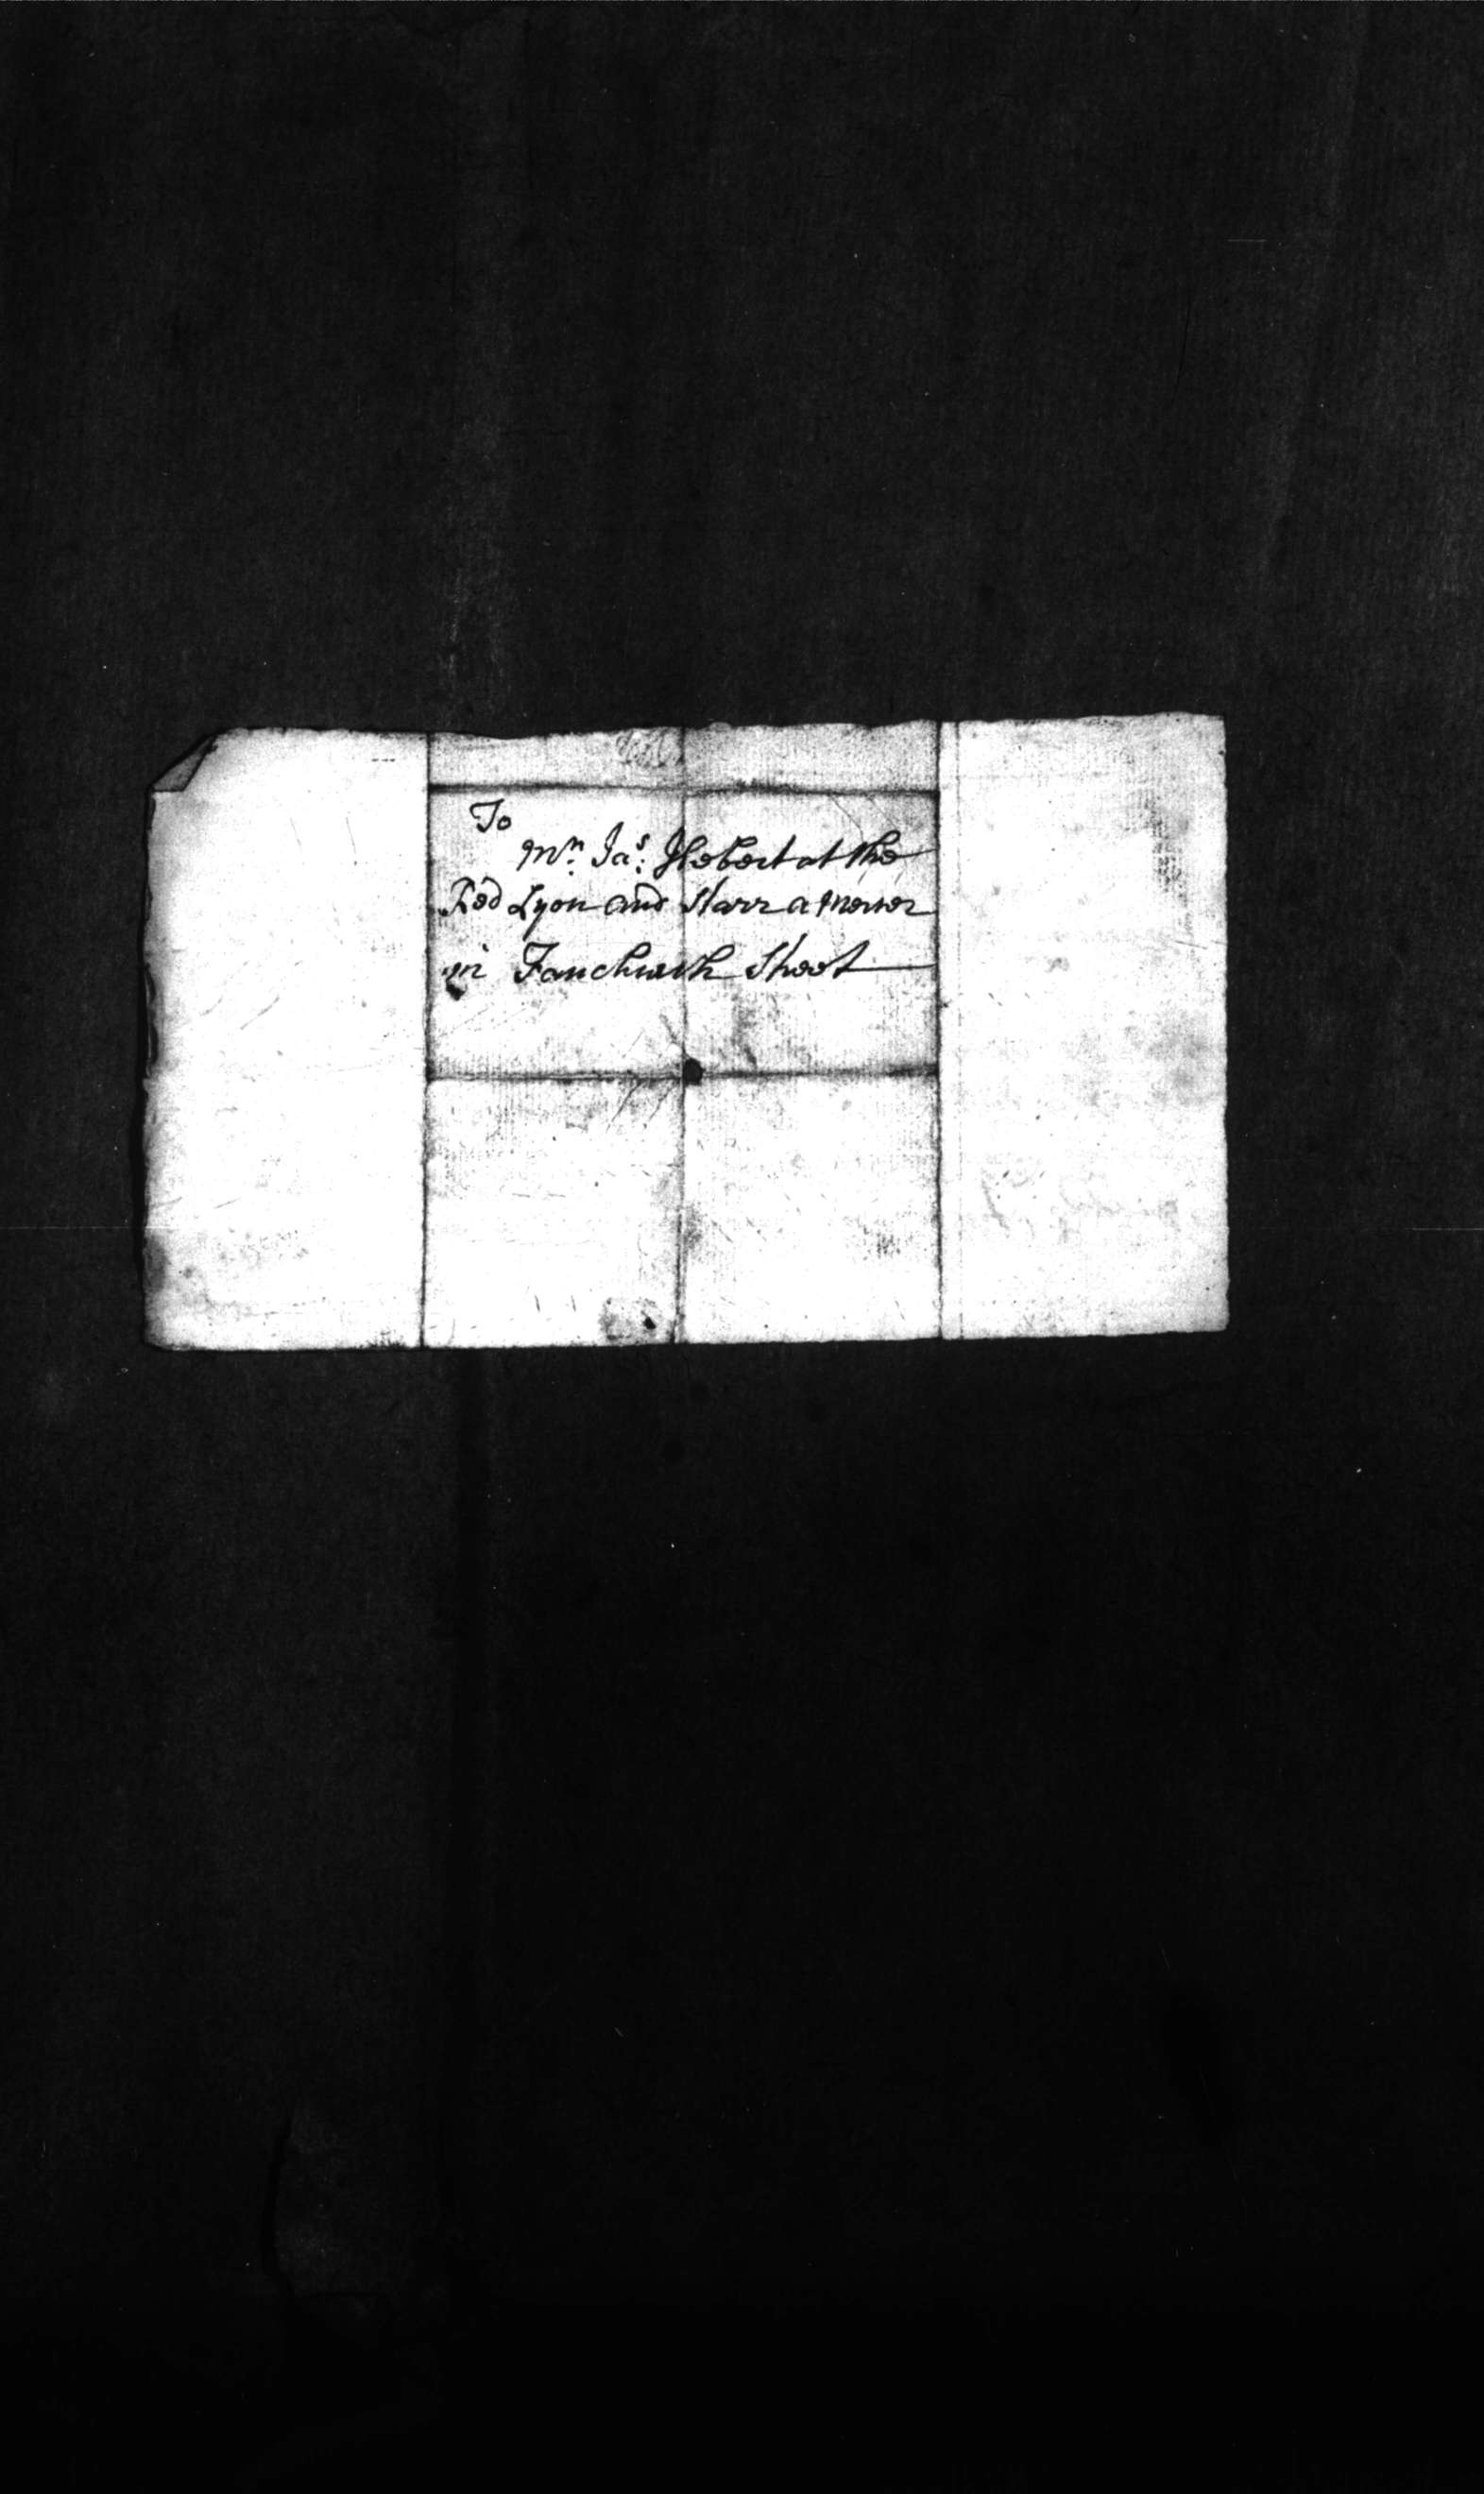 To
Mr. Jas: Hebert at the
Red Lyon and Starr a Mercer
in Fanchurch Street